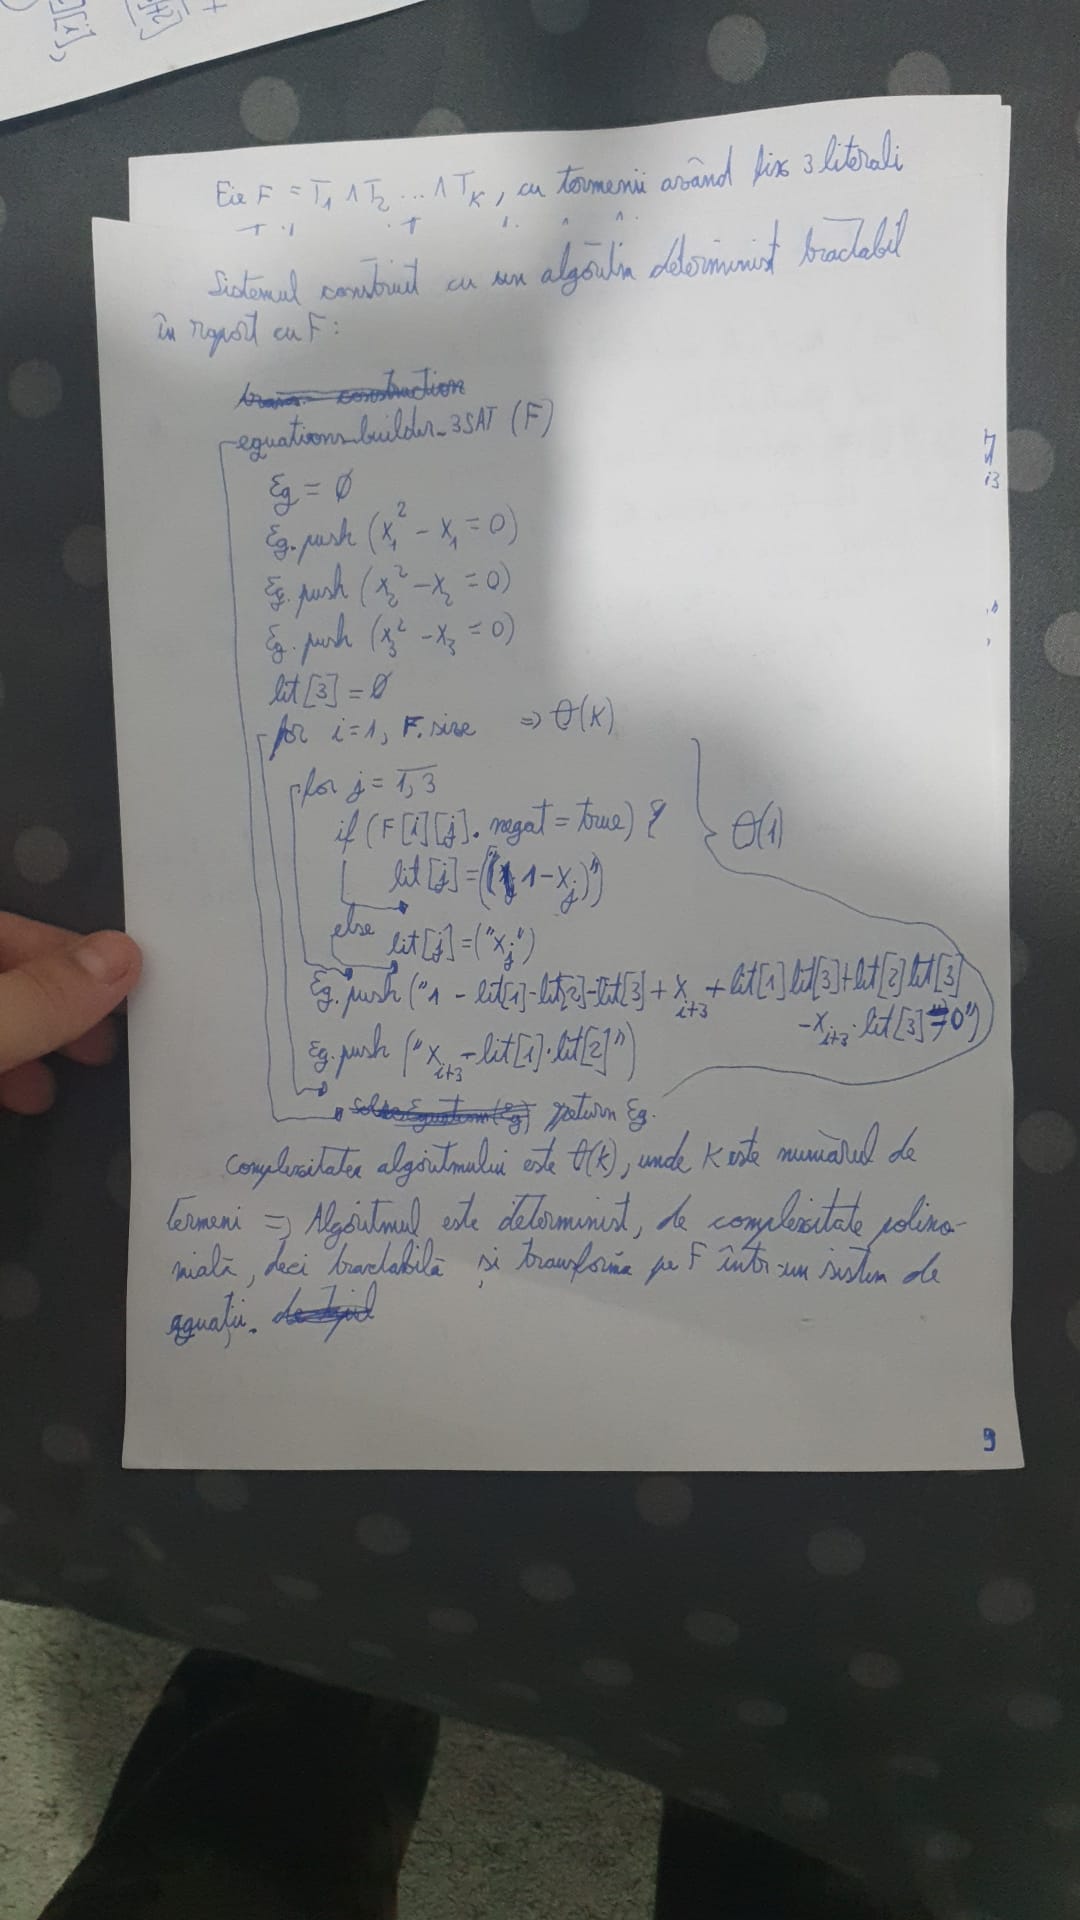 Fie F = T₁ ∧ T₂ ... ∧ Tₖ, cu termenii având fix 3 literali
Sistemul construit cu un algoritm determinist tractabil
în raport cu F:
equations_builder_3SAT (F)
Eq = ∅
Eq.push (x₁² - x₁ = 0)
Eq.push (x₂² - x₂ = 0)
Eq.push (x₃² - x₃ = 0)
lit[3] = ∅
for i=1, F.size => θ(K)
for j = 1,3
if (F[i][j].negat = true) {
θ(1)
lit[j] = ("1-xⱼ")
else
lit[j] = ("xⱼ")
Eq.push ("1 - lit[1]-lit[2]-lit[3] + xᵢ₊₃ + lit[1]lit[3]+lit[2]lit[3]
-xᵢ₊₃·lit[3]=0")
Eq.push ("xᵢ₊₃-lit[1]·lit[2]")
return Eq.
Complexitatea algoritmului este θ(k), unde K este numărul de
termeni => Algoritmul este determinist, de complexitate polino-
mială, deci tractabilă și transformă pe F într-un sistem de
equații.
9